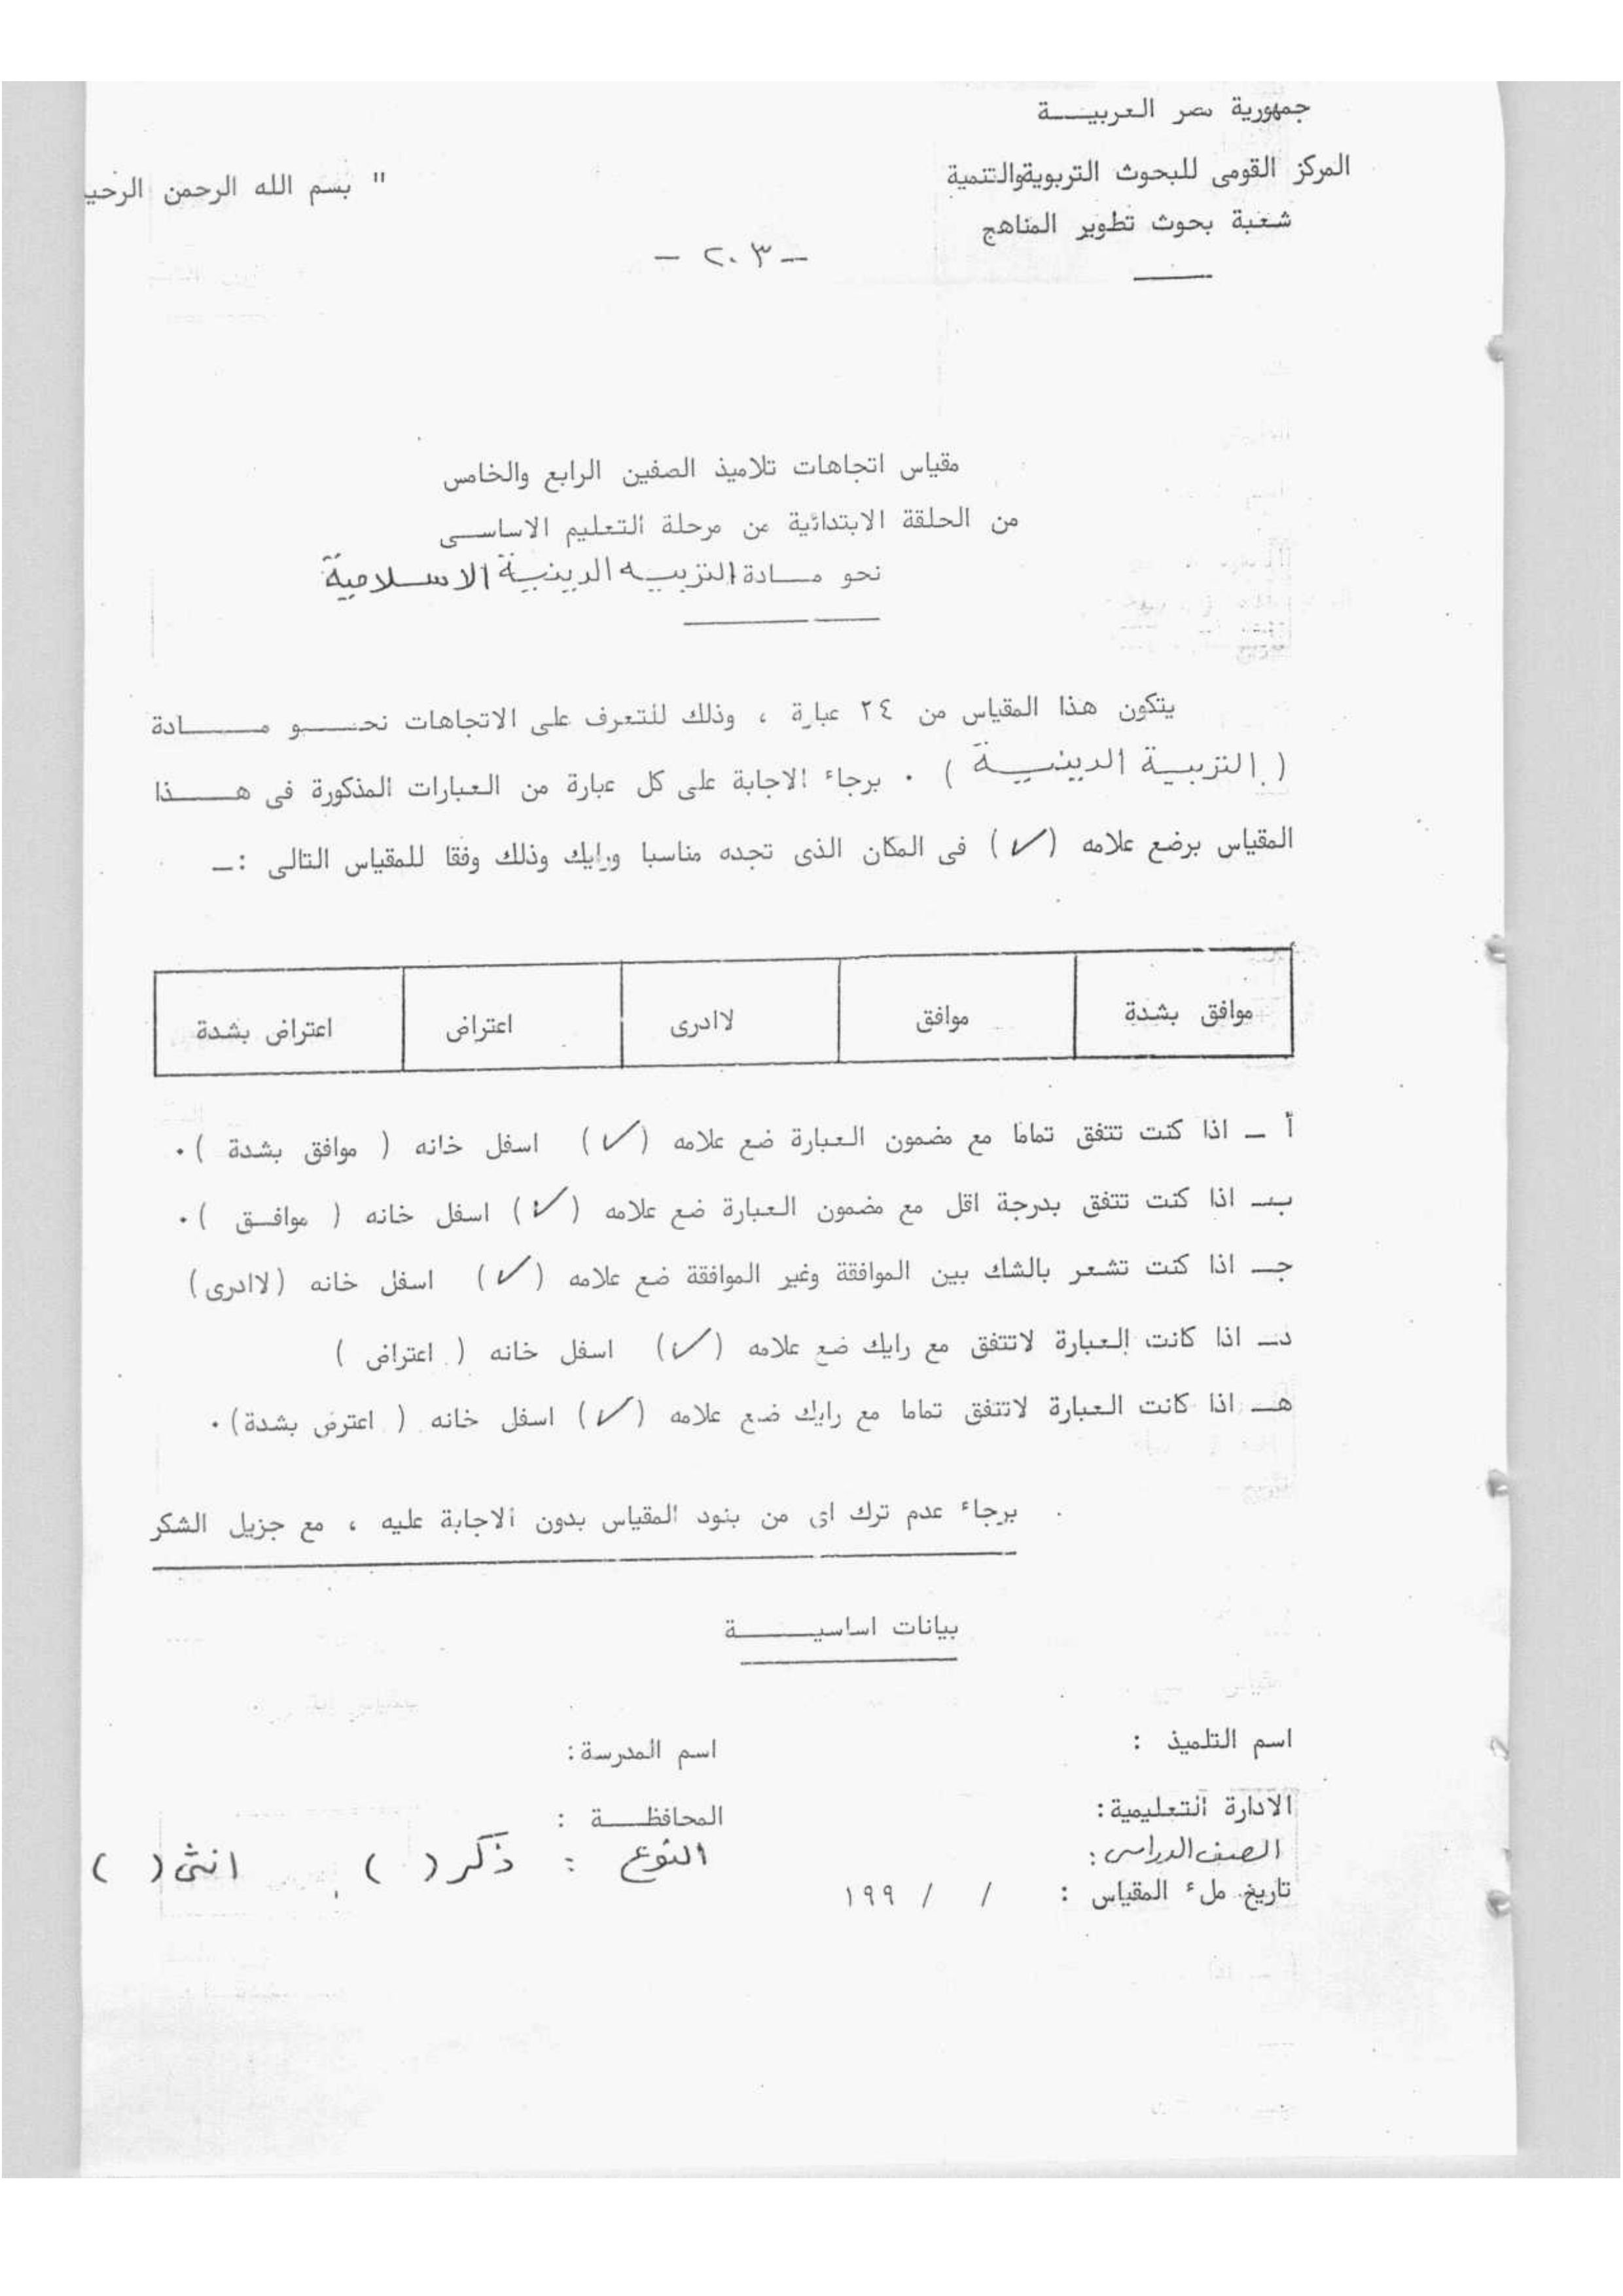 جمهورية مصر العربيـــة
المركز القومى للبحوث التربويةوالتنمية
" بسم الله الرحمن الرحيـ
شعبة بحوث تطوير المناهج
- ٢٠٣ -
مقياس اتجاهات تلاميذ الصفين الرابع والخامس
من الحلقة الابتدائية من مرحلة التعليم الاساســى
نحو مــادة التربيــه الدينيــة الاسـلاميـة
يتكون هذا المقياس من ٢٤ عبارة ، وذلك للتعرف على الاتجاهات نحـــو مـــــادة
( التربيــة الدينيـــة ) . برجاء الاجابة على كل عبارة من العبارات المذكورة فى هـــــذا
المقياس برضع علامه (✓) فى المكان الذى تجده مناسبا ورايك وذلك وفقا للمقياس التالى :ـ
موافق بشدة | موافق | لاادرى | اعتراض | اعتراض بشدة
أ ـ اذا كنت تتفق تماما مع مضمون العبارة ضع علامه (✓) اسفل خانه ( موافق بشدة ).
بـ اذا كنت تتفق بدرجة اقل مع مضمون العبارة ضع علامه (✓) اسفل خانه ( موافـق ).
جـ اذا كنت تشعر بالشك بين الموافقة وغير الموافقة ضع علامه (✓) اسفل خانه (لاادرى)
دـ اذا كانت العبارة لاتتفق مع رايك ضع علامه (✓) اسفل خانه ( اعتراض )
هـ اذا كانت العبارة لاتتفق تماما مع رايك ضع علامه (✓) اسفل خانه ( اعترض بشدة).
برجاء عدم ترك اى من بنود المقياس بدون الاجابة عليه ، مع جزيل الشكر
بيانات اساسيـــــة
اسم التلميذ :
اسم المدرسة:
الادارة التعليمية:
المحافظـــة :
الصف الدراسى:
النوع : ذكر ( ) انثى ( )
تاريخ ملء المقياس : / / ١٩٩